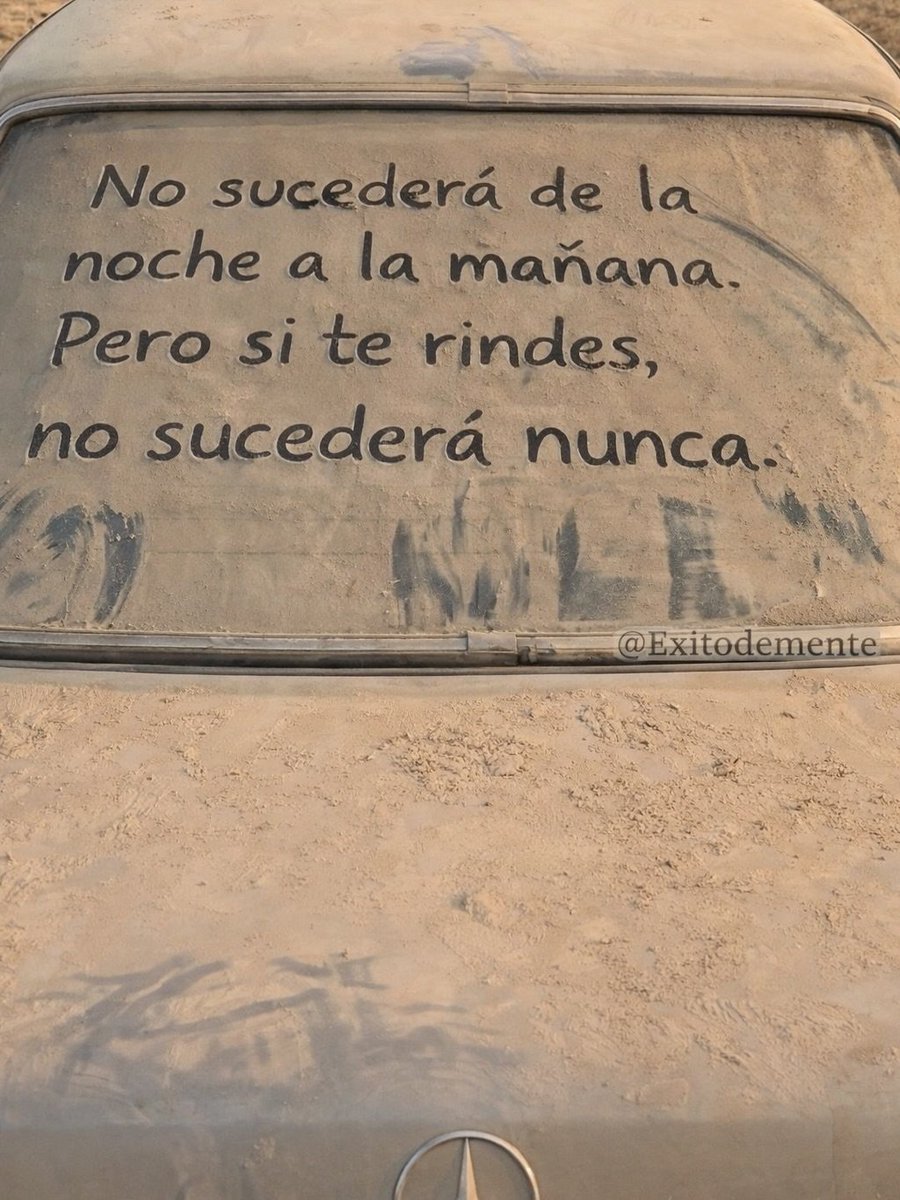 No sucederá de la
noche a la mañana.
Pero si te rindes,
no sucederá nunca.
@Exitodemente